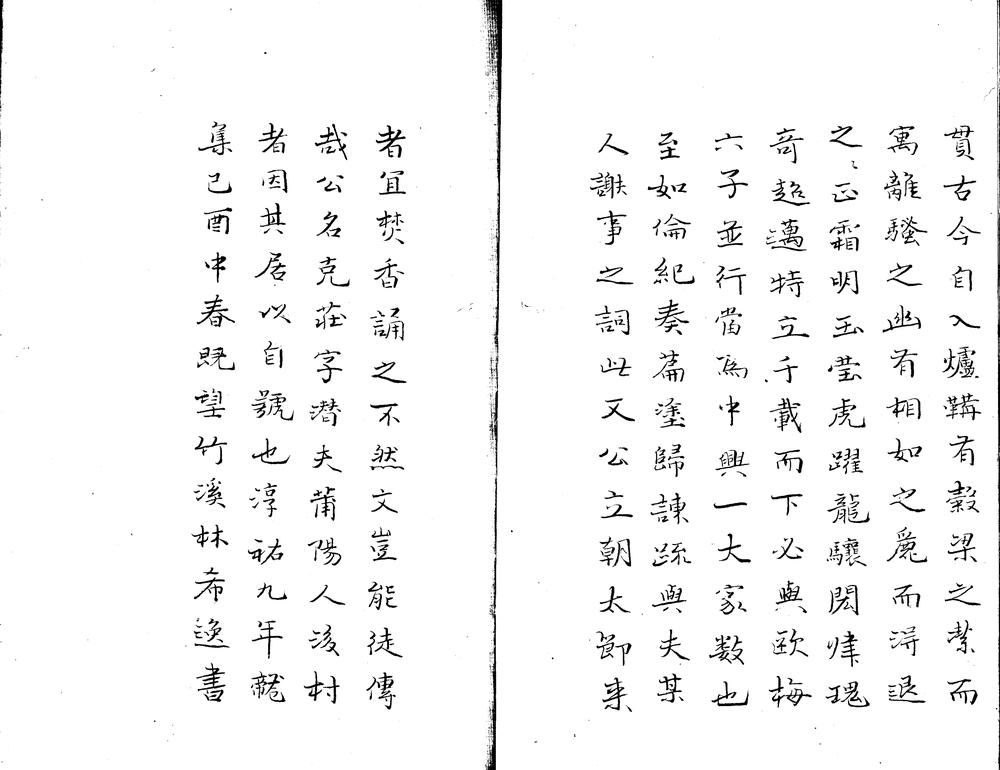 貫古今自入爐鞲有穀梁之潔而
寓離騷之幽有相如之麗而得退
之之正霜明玉瑩虎躍龍驤閎偉瑰
奇超邁特立千載而下必與歐梅
六子並行當為中興一大家數也
至如倫紀奏篇塗歸諫疏與夫某
人謝事之詞此又公立朝太節来
者宜焚香誦之不然文豈能徒傳
哉公名克莊字潛夫莆陽人後村
者因其居以自號也淳祐九年龝
集己酉中春既望竹溪林希逸書